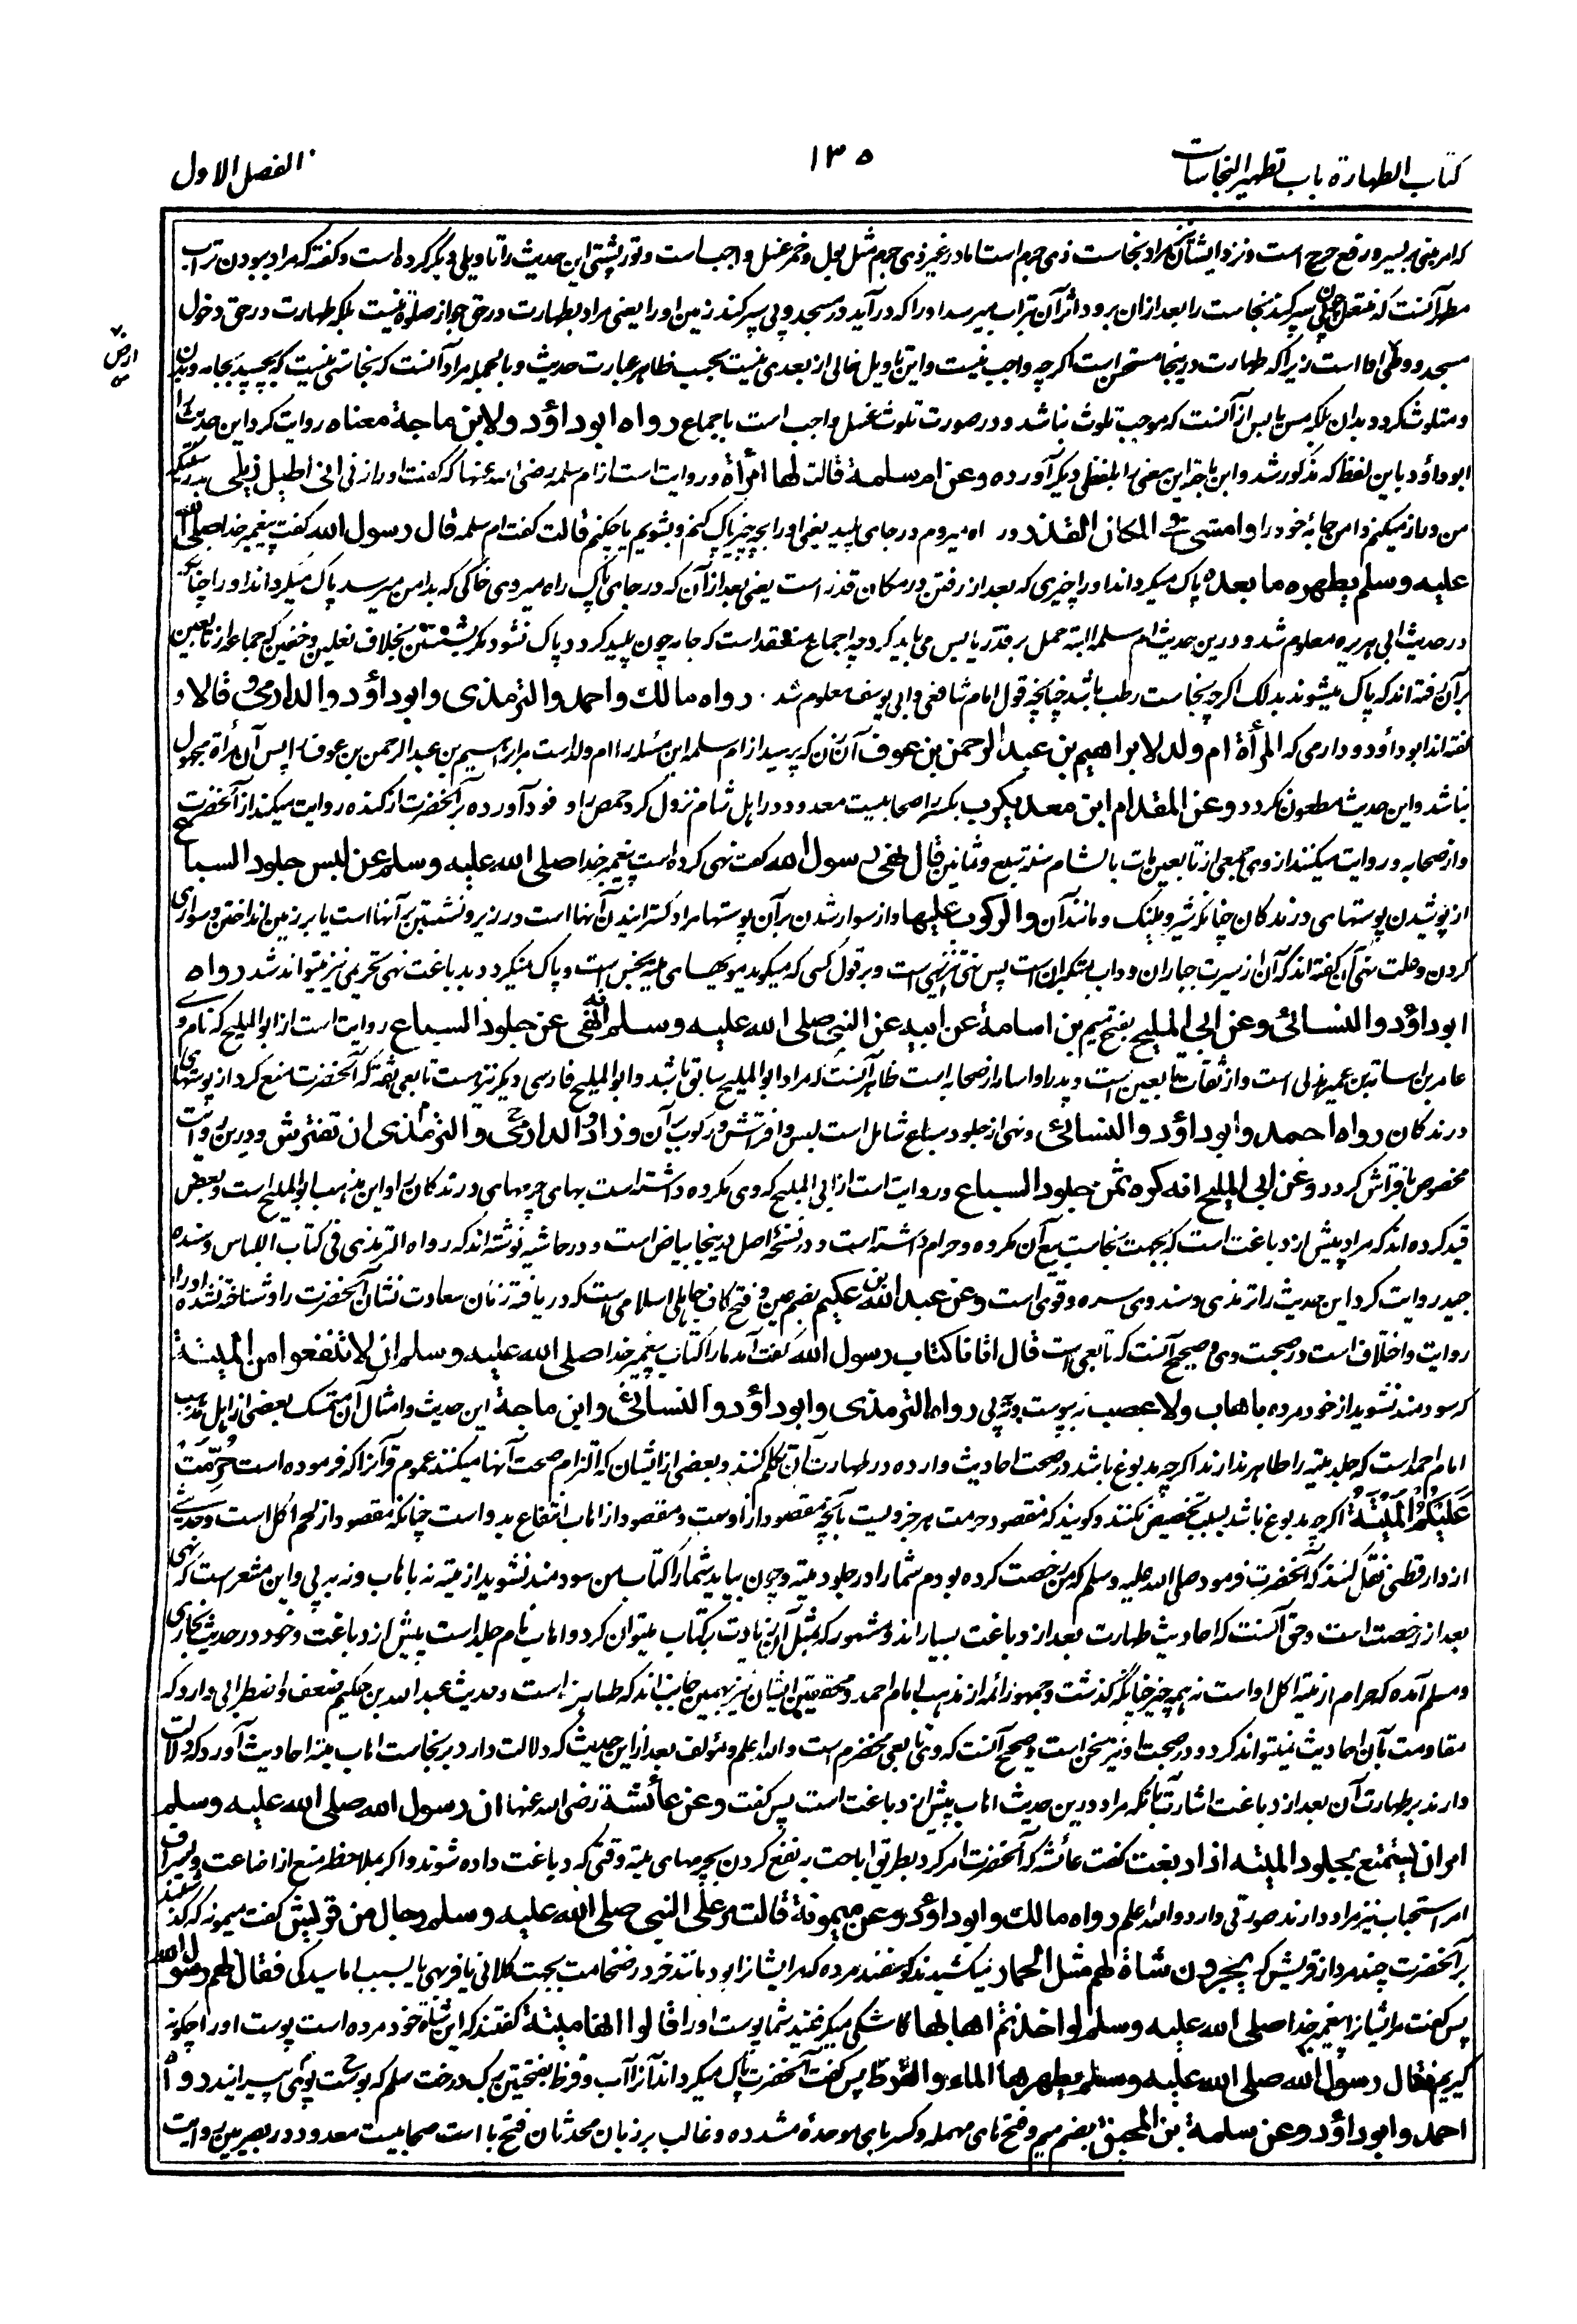 کتاب الطهارة باب تطهیر النجاسات
۱۳۵
الفصل الاول
که امر مبنی بر یسر و رفع حرج است و نزد ایشان مراد نجاست ذی جرم است اما در غیر ذی جرم مثل بول و خمر غسل واجب است و تورپشتی این حدیث را تاویلی دیگر کرده است و گفته که مراد ببودن تراب
مطهر آنست که منتعل چون پی سپر کند نجاست را بعد از ان برود اثر آن بتراب میرسد او را که در آید در مسجد و پی سپر کند زمین او را یعنی مراد بطهارت در حق جواز صلوة نیست بلکه طهارت در حق دخول
ارض
مسجد و وطی است زیرا که طهارت درینجا مستحسن است اگرچه واجب نیست و این تاویل خالی از بعدی نیست بحسب ظاهر عبارت حدیث و بالجمله مراد آنست که نجاستی نیست که بچسپد بجامه و بدن
و متلوث گردد بدان بلکه مس یابس از آنست که موجب تلوث نباشد و در صورت تلوث غسل واجب است باجماع رواه ابو داؤد و لابن ماجة معناه روایت کرد این حدیث را
ابو داؤد باین لفظ که مذکور شد و ابن ماجه این معنی را بلفظی دیگر آورده وعن ام سلمة قالت لها امرأة و روایت است از ام سلمه رضی الله عنها که گفت او را زنی انی اطیل ذیلی بدرستیکه
من دراز میکنم دامن جامۀ خود را وامشی فی المکان القذر و راه میروم در جای پلید یعنی او را بچه چیز پاک کنم و بشویم یا چکنم قالت گفت ام سلمه قال رسول الله گفت پیغمبر خدا صلی الله
علیه وسلم یطهره ما بعده پاک میگرداند او را چیزی که بعد از رفتن در مکان قذر است یعنی بعد از آن که در جای پاک راه میروی خاکی که بدامن میرسد پاک میگرداند او را چنانکه
در حدیث ابی هریره معلوم شد و درین حدیث ام سلمه البته حمل بر قذر یابس می باید کرد چه اجماع منعقد است که جامه چون پلید گردد پاک نشود مگر بشستن بخلاف نعلین و خفین که جماعه از تابعین
بر آن رفته اند که پاک میشوند بدلک اگرچه نجاست رطب باشد چنانچه قول امام شافعی و ابی یوسف معلوم شد. رواه مالك واحمد والترمذی وابو داؤد والدارمی و قالا و
گفته اند ابو داؤد و دارمی که المرأة ام ولد لابراهیم بن عبد الرحمن بن عوف آن زن که پرسید از ام سلمه این مسئله را ام ولد است مر ابراهیم بن عبد الرحمن بن عوف را پس آن مرأة مجهول
نباشد و این حدیث مطعون نگردد وعن المقدام ابن معدیکرب بکسر را صحابیست معدود در اهل شام نزول کرد حمص را و فود آورده بر آنحضرت از کنده روایت میکند از آنحضرت
و از صحابه و روایت میکنند از وی جمعی از تابعین مات بالشام سنة سبع وثمانین قال نهی رسول الله گفت نهی کرده است پیغمبر خدا صلی الله علیه وسلم عن لبس جلود السباع
از پوشیدن پوستهای درندگان چنانکه شیر و پلنگ و مانند آن والرکوب علیها و از سوار شدن بر آن پوستها مراد گسترانیدن آنها است در زیر و نشستن بر آنها است یا بر زین انداختن و سواری
کردن و علت نهی آن گفته اند که آن از سیرت جباران و داب متکبران است پس نهی تنزیهی است و بر قول کسی که میگوید مویهای میته نجس است و پاک نمیگردد بدباغت نهی تحریمی نیز میتواند شد رواه
ابو داؤد والنسائی وعن ابی الملیح بفتح میم بن اسامة عن ابیه عن النبی صلی الله علیه وسلم انه نهی عن جلود السباع روایت است از ابو الملیح که نام وی
عامر بن اسامة بن عمیر هذلی است و از ثقات تابعین است و پدر او اسامه از صحابه است ظاهر آنست که مراد ابو الملیح سابق باشد و ابو الملیح فارسی دیگر نیز هست تابعی ثقه که آنحضرت منع کرد از پوستهای
درندگان رواه احمد وابو داؤد والنسائی و نهی از جلود سباع شامل است لبس و افتراش و رکوب بر آن وزاد الدارمی والترمذی ان تفترش و درین روایت
مخصوص بافتراش گردد وعن ابی الملیح انه کره ثمن جلود السباع و روایت است از ابی الملیح که وی مکروه داشته است بهای چرمهای درندگان را و این مذهب ابو الملیح است و بعض
قید کرده اند که مراد پیش از دباغت است که بجهت نجاست بیع آن مکروه و حرام داشته است و در نسخۀ اصل درینجا بیاض است و در حاشیه نوشته اند که رواه الترمذی فی کتاب اللباس و سنده
جید روایت کرد این حدیث را ترمذی و سند وی سره و قوی است وعن عبد الله بن عکیم بضم عین و فتح کاف جاهلی اسلامی است که دریافته زمان سعادت نشان آنحضرت را و شناخته نشده او را
روایت و اختلاف است در صحبت وی و صحیح آنست که تابعی است قال اتانا کتاب رسول الله گفت آمد ما را کتاب پیغمبر خدا صلی الله علیه وسلم ان لا تنتفعوا من المیتة
که سودمند نشوید از خود مرده باهاب ولا عصب نه بپوست و نه پی رواه الترمذی وابو داؤد والنسائی وابن ماجة این حدیث و امثال آن متمسک بعضی از اهل مذهب
امام احمد است که جلد میته را طاهر ندارند اگرچه مدبوغ باشد و در صحت احادیث وارده در طهارت آن تکلم کنند و بعضی از ایشان که التزام صحت آنها میکنند عموم قرآن را که فرموده است حُرِّمَتْ
عَلَیْکُمُ الْمَیْتَةُ اگرچه مدبوغ باشد بسبب تخصیص نکنند و گویند که مقصود حرمت هر جزویست بآنچه مقصود از اوست و مقصود از اهاب انتفاع بدو است چنانکه مقصود از لحم اکل است و حدیثی
از دارقطنی نقل کنند که آنحضرت فرمود صلی الله علیه وسلم که من رخصت کرده بودم شما را در جلود میته و چون بیاید شما را کتاب من سودمند نشوید از میته نه باهاب و نه به پی و این مشعر است که نهی
بعد از رخصت است و حق آنست که احادیث طهارت بعد از دباغت بسیار اند و مشهور که بمثل آن زیادت بر کتاب میتوان کرد و اهاب نام جلد است پیش از دباغت و خود در حدیث بخاری
و مسلم آمده که حرام از میته اکل او است نه همه چیز چنانکه گذشت و جمهور ائمه از مذهب امام احمد و محققین ایشان نیز بهمین جانب اند که طاهر است و حدیث عبد الله بن عکیم ضعف و اضطرابی دارد که
مقاومت بآن احادیث نمیتواند کرد و در صحبت او نیز سخن است و صحیح آنست که وی تابعی مخضرم است والله اعلم و مؤلف بعد از این حدیث که دلالت دارد بر نجاست اهاب میته احادیث آورد که دلالت
دارند بر طهارت آن بعد از دباغت اشارت بآنکه مراد درین حدیث اهاب پیش از دباغت است پس گفت وعن عائشة رضی الله عنها ان رسول الله صلی الله علیه وسلم
امر ان یستمتع بجلود المیتة اذا دبغت گفت عائشه که آنحضرت امر کرد بطریق اباحت به نفع کردن بچرمهای میته وقتی که دباغت داده شوند و اگر بملاحظه منع از اضاعت و اسراف
امر استحباب نیز مراد دارند صورتی دارد والله اعلم رواه مالك وابو داؤد وعن میمونة قالت مر علی النبی صلی الله علیه وسلم رجال من قریش گفت میمونه که گذشتند
بر آنحضرت چند مرد از قریش که یجرون شاة لهم مثل الحمار میکشیدند گوسفند مرده که مر ایشان را بود مانند خر در ضخامت بجهت کلانی یا فربهی یا بسبب اماسیدگی فقال لهم رسول الله
پس گفت مر ایشان را پیغمبر خدا صلی الله علیه وسلم لو اخذتم اهابها کاشکی میگرفتید شما پوست او را قالوا انها میتة گفتند که این شاة خود مرده است پوست او را چگونه
گیریم فقال رسول الله صلی الله علیه وسلم یطهرها الماء والقرظ پس گفت آنحضرت پاک میگرداند آن را آب و قرظ بفتحتین برگ درخت سلم که پوست بوی پیرایند رواه
احمد وابو داؤد وعن سلمة بن المحبق بضم میم و فتح حای مهمله و کسر بای موحدۀ مشدده و غالب بر زبان محدثان فتح با است صحابیست معدود در بصریین روایت